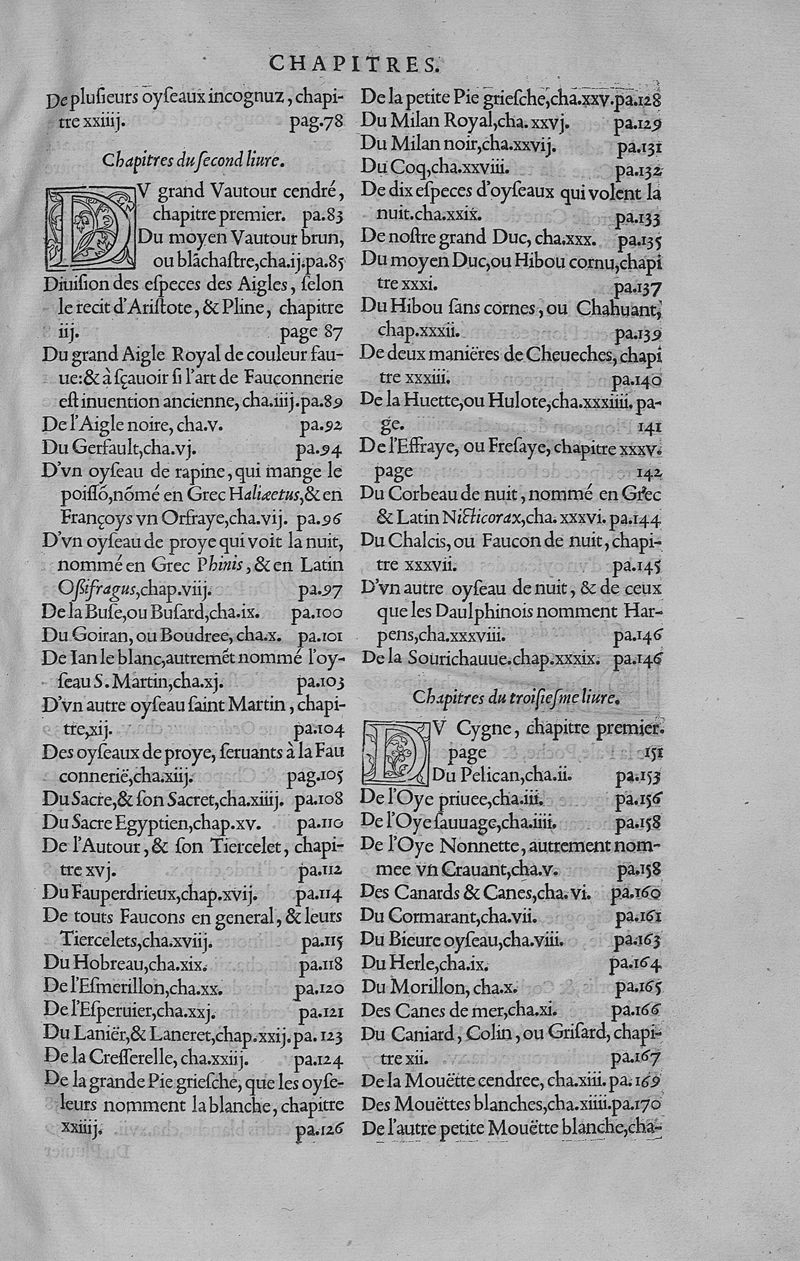 CHAPITRES.
De pluſieurs oyſeaux incognuz, chapi-
tre xxiiij. pag.78
Chapitres du ſecond liure.
DV grand Vautour cendré,
chapitre premier. pa.83
Du moyen Vautour brun,
ou blãchaſtre,cha.ij.pa.85
Diuiſion des eſpeces des Aigles, ſelon
le recit d'Ariſtote, & Pline, chapitre
iij. page 87
Du grand Aigle Royal de couleur fau-
ue:& à ſçauoir ſi l'art de Fauconnerie
eſt inuention ancienne, cha.iiij.pa.89
De l'Aigle noire, cha.v. pa.92
Du Gerfault,cha.vj. pa.94
D'vn oyſeau de rapine, qui mange le
poiſſõ,nõmé en Grec Haliæetus,& en
Françoys vn Orfraye,cha.vij. pa.96
D'vn oyſeau de proye qui voit la nuit,
nommé en Grec Phinis, & en Latin
Oſsifragus,chap.viij. pa.97
De la Buſe,ou Buſard,cha.ix. pa.100
Du Goiran, ou Boudree, cha.x. pa.101
De Ian le blanc,autremẽt nommé l'oy-
ſeau S. Martin,cha.xj. pa.103
D'vn autre oyſeau ſaint Martin, chapi-
tre,xij. pa.104
Des oyſeaux de proye, ſeruants à la Fau
connerie,cha.xiij. pag.105
Du Sacre,& ſon Sacret,cha.xiiij. pa.108
Du Sacre Egyptien,chap.xv. pa.110
De l'Autour, & ſon Tiercelet, chapi-
tre xvj. pa.112
Du Fauperdrieux,chap.xvij. pa.114
De touts Faucons en general, & leurs
Tiercelets,cha.xviij. pa.115
Du Hobreau,cha.xix. pa.118
De l'Eſmerillon,cha.xx. pa.120
De l'Eſperuier,cha.xxj. pa.121
Du Laniër,& Laneret,chap.xxij.pa. 123
De la Creſſerelle, cha.xxiij. pa.124
De la grande Pie grieſche, que les oyſe-
leurs nomment la blanche, chapitre
xxiiij. pa.126
De la petite Pie grieſche,cha.xxv.pa.128
Du Milan Royal,cha. xxvj. pa.129
Du Milan noir,cha.xxvij. pa.131
Du Coq,cha.xxviii. pa.132
De dix eſpeces d'oyſeaux qui volent la
nuit.cha.xxix. pa.133
De noſtre grand Duc, cha.xxx. pa.135
Du moyen Duc,ou Hibou cornu,chapi
tre xxxi. pa.137
Du Hibou ſans cornes, ou Chahuant,
chap.xxxii. pa.139
De deux maniëres de Cheueches, chapi
tre xxxiii. pa.140
De la Huette,ou Hulote,cha.xxxiiii. pa-
ge. 141
De l'Effraye, ou Freſaye, chapitre xxxv.
page 142
Du Corbeau de nuit, nommé en Grec
& Latin Nicticorax,cha. xxxvi. pa.144
Du Chalcis, ou Faucon de nuit, chapi-
tre xxxvii. pa.145
D'vn autre oyſeau de nuit, & de ceux
que les Daulphinois nomment Har-
pens,cha.xxxviii. pa.146
De la Sourichauue.chap.xxxix. pa.146
Chapitres du troiſieſme liure.
DV Cygne, chapitre premier.
page 151
Du Pelican,cha.ii. pa.153
De l'Oye priuee,cha.iii. pa.156
De l'Oye ſauuage,cha.iiii. pa.158
De l'Oye Nonnette, autrement nom-
mee vn Crauant,cha.v. pa.158
Des Canards & Canes,cha.vi. pa.160
Du Cormarant,cha.vii. pa.161
Du Bieure oyſeau,cha.viii. pa.163
Du Herle,cha.ix. pa.164
Du Morillon, cha.x. pa.165
Des Canes de mer,cha.xi. pa.166
Du Caniard, Colin, ou Griſard, chapi-
tre xii. pa.167
De la Mouëtte cendree, cha.xiii.pa.169
Des Mouëttes blanches,cha.xiiii.pa.170
De l'autre petite Mouëtte blanche,cha-